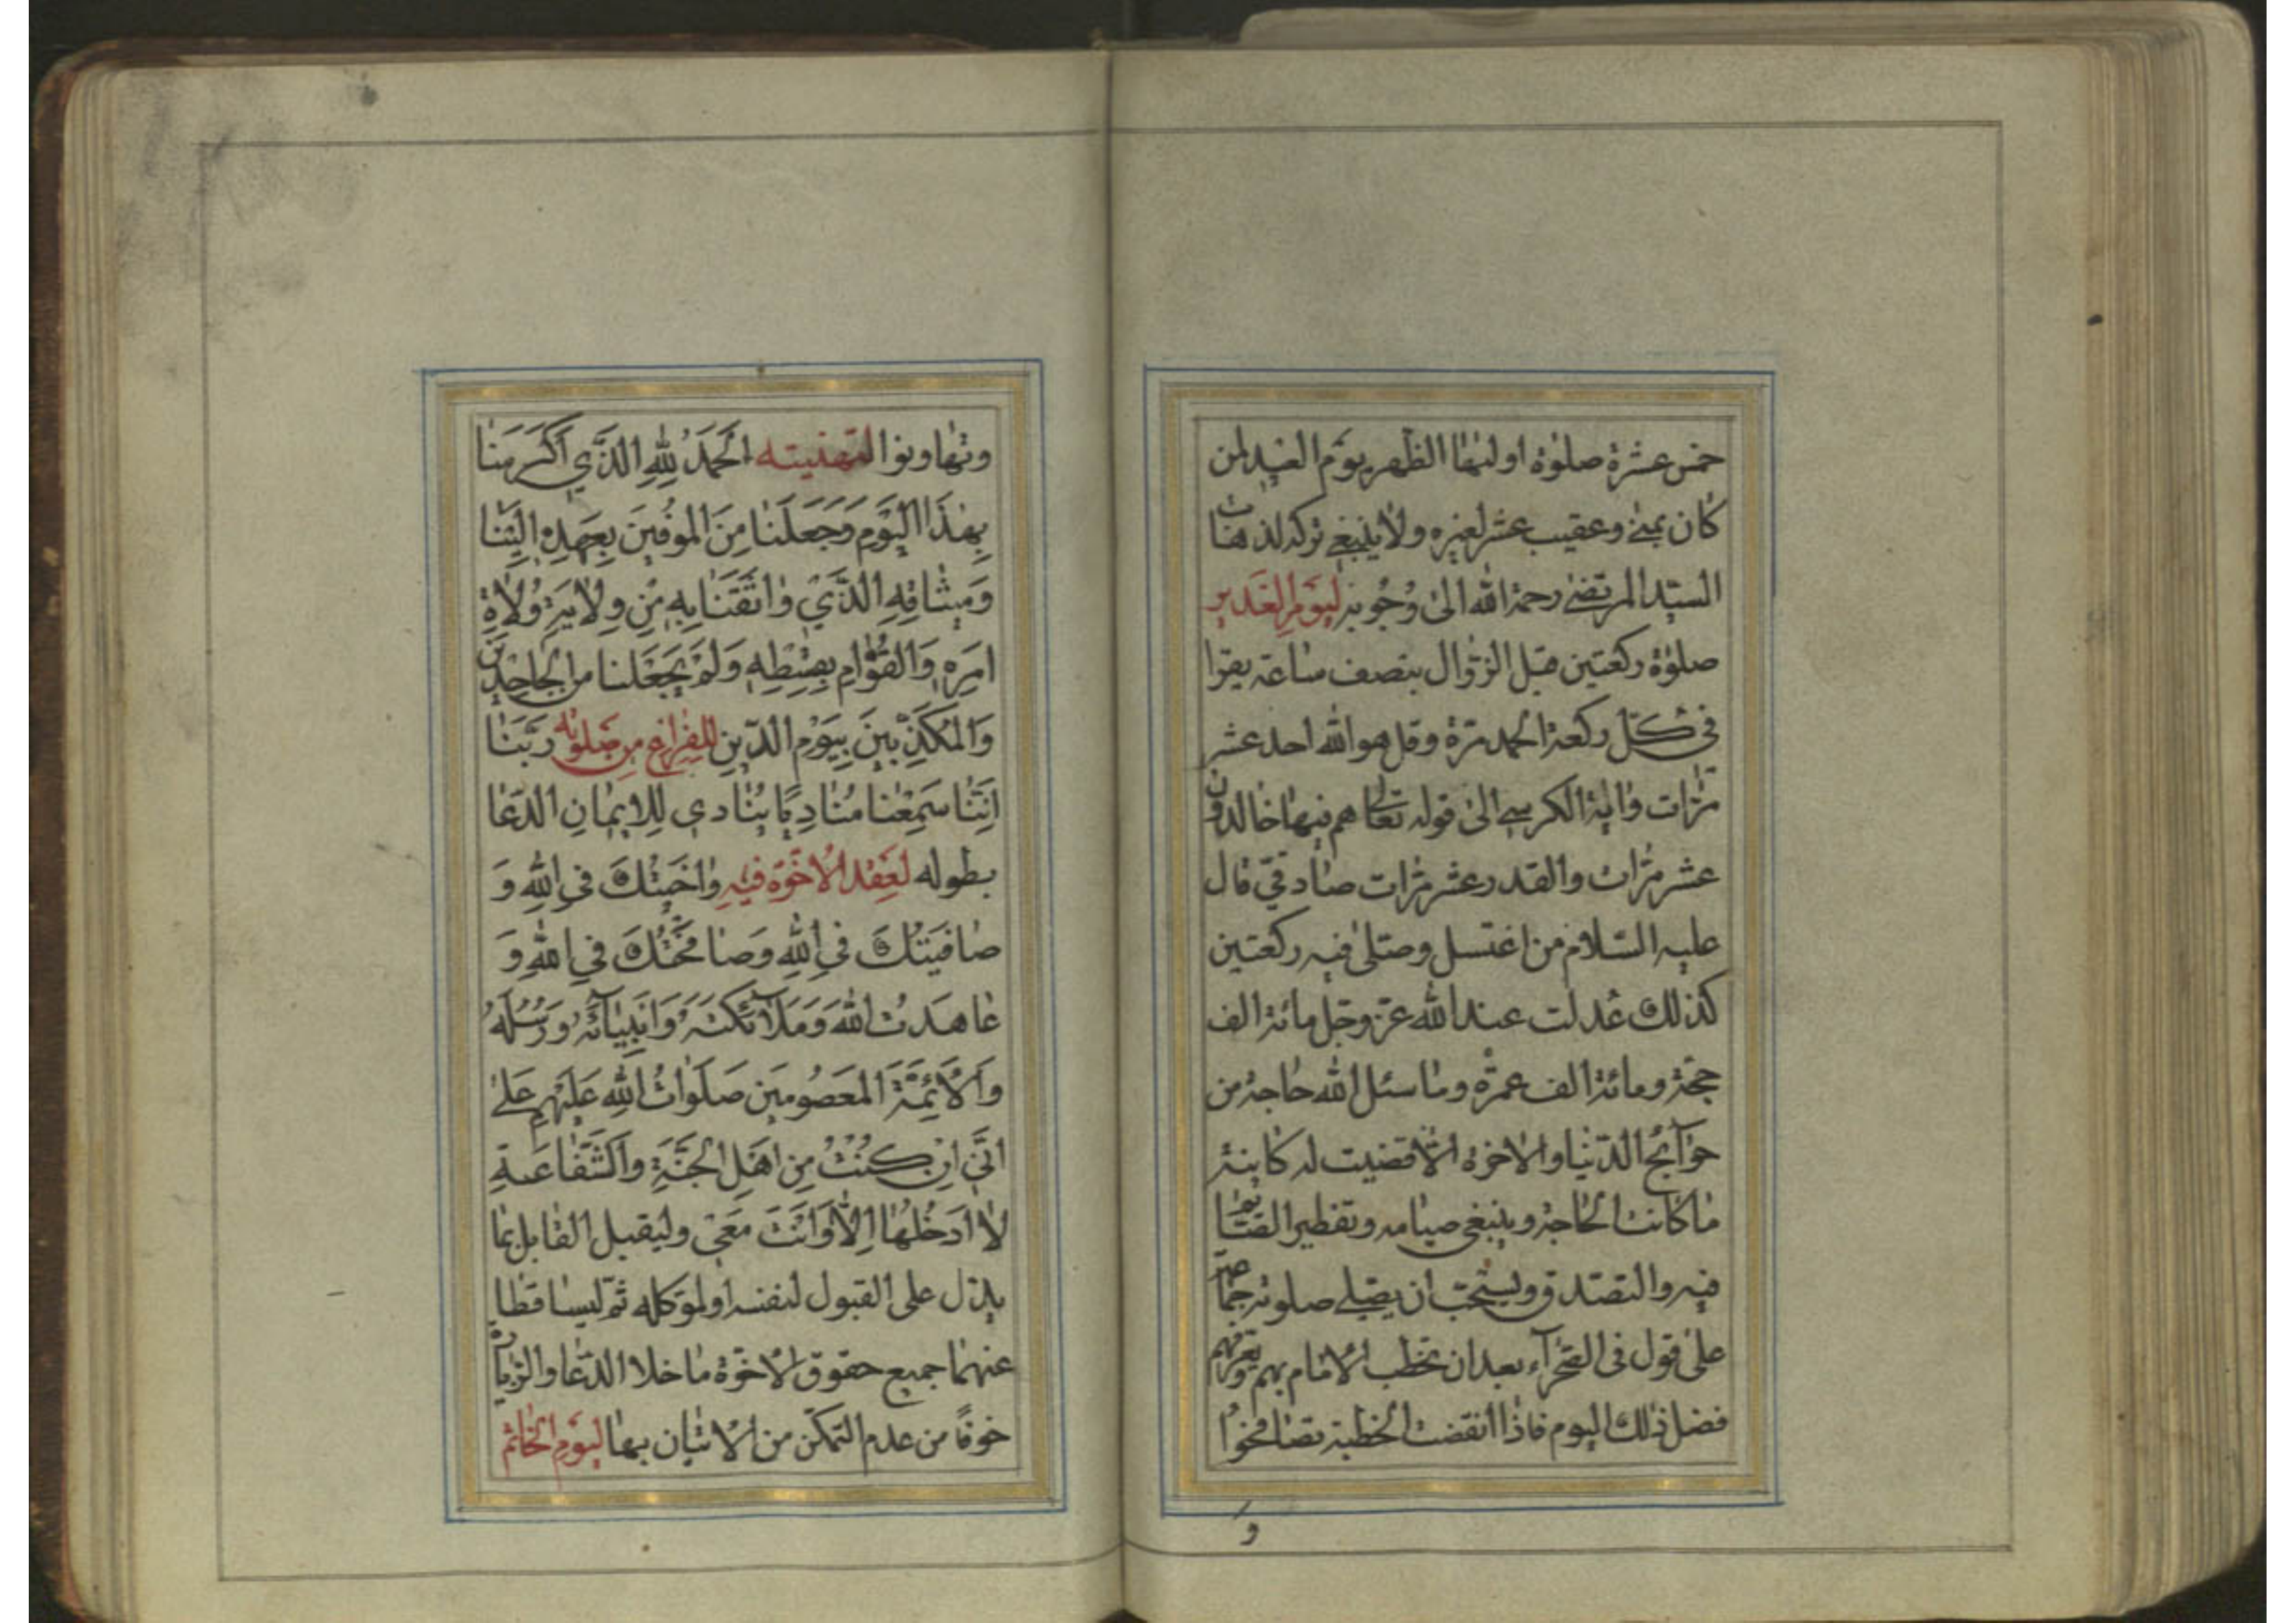 خمس عشرة صلوة اولیها الظهر یوم العید لمن
كان بمنى وعقیب عشر لغیره ولا ینبغی تركه لذهاب
السید المرتضى رحمة الله الى وجوبه لیوم الغدیر
صلوة ركعتین قبل الزوال بنصف ساعة یقرا
فی كل ركعة الحمد مرة وقل هو الله احد عشر
مرات وایة الكرسی الى قوله تعالى هم فیها خالدون
عشر مرات والقدر عشر مرات صادقی قال
علیه السلام من اغتسل وصلى فیه ركعتین
كذلك عدلت عند الله عز وجل مائة الف
حجة ومائة الف عمرة وما سئل الله حاجة من
حوآئج الدنیا والاخرة الا قضیت له كاینة
ما كانت الحاجة وینبغی صیامه وتفطیر
فیه والتصدق ویستحب ان یصلی صلوته جماعة
على قول فی الصحرآء بعد ان یخطب الامام بهم ویعرفهم
فضل ذلك الیوم فاذا انقضت الخطبة تصافحوا
و
وتهاونوا لتهنیته اَلْحَمْدُ لِلّٰهِ الَّذِی اَكْرَمَنَا
بِهٰذَا الْیَوْمِ وَجَعَلَنَا مِنَ الْمُوفِینَ بِعَهْدِهِ اِلَیْنَا
وَمِیثَاقِهِ الَّذِی وَاثَقَنَا بِهِ مِنْ وِلَایَةِ وُلَاةِ
اَمْرِهِ وَالْقُوَّامِ بِقِسْطِهِ وَلَمْ یَجْعَلْنَا مِنَ الْجَاحِدِینَ
وَالْمُكَذِّبِینَ بِیَوْمِ الدِّینِ للفراغ من صلوته رَبَّنَا
اِنَّنَا سَمِعْنَا مُنَادِیًا یُنَادِی لِلْاِیمَانِ الدعا
بطوله لعقد الاخوة فیه وَاخَیْتُكَ فِی اللهِ وَ
صَافَیْتُكَ فِی اللهِ وَصَافَحْتُكَ فِی اللهِ وَ
عَاهَدْتُ اللهَ وَمَلَآئِكَتَهُ وَاَنْبِیَآئَهُ وَرُسُلَهُ
وَالْاَئِمَّةَ الْمَعْصُومِینَ صَلَوَاتُ اللهِ عَلَیْهِمْ عَلٰى
اَنِّی اِنْ كُنْتُ مِنْ اَهْلِ الْجَنَّةِ وَالشَّفَاعَةِ
لَا اَدْخُلُهَا اِلَّا وَاَنْتَ مَعِی ولیقبل القابل بما
یدل على القبول لنفسه او لموكله ثم لیسا قطا
عنهما جمیع حقوق الاخوة ما خلا الدعا والزیارة
خوفًا من عدم التمكن من الاتیان بها لیوم الخاتم